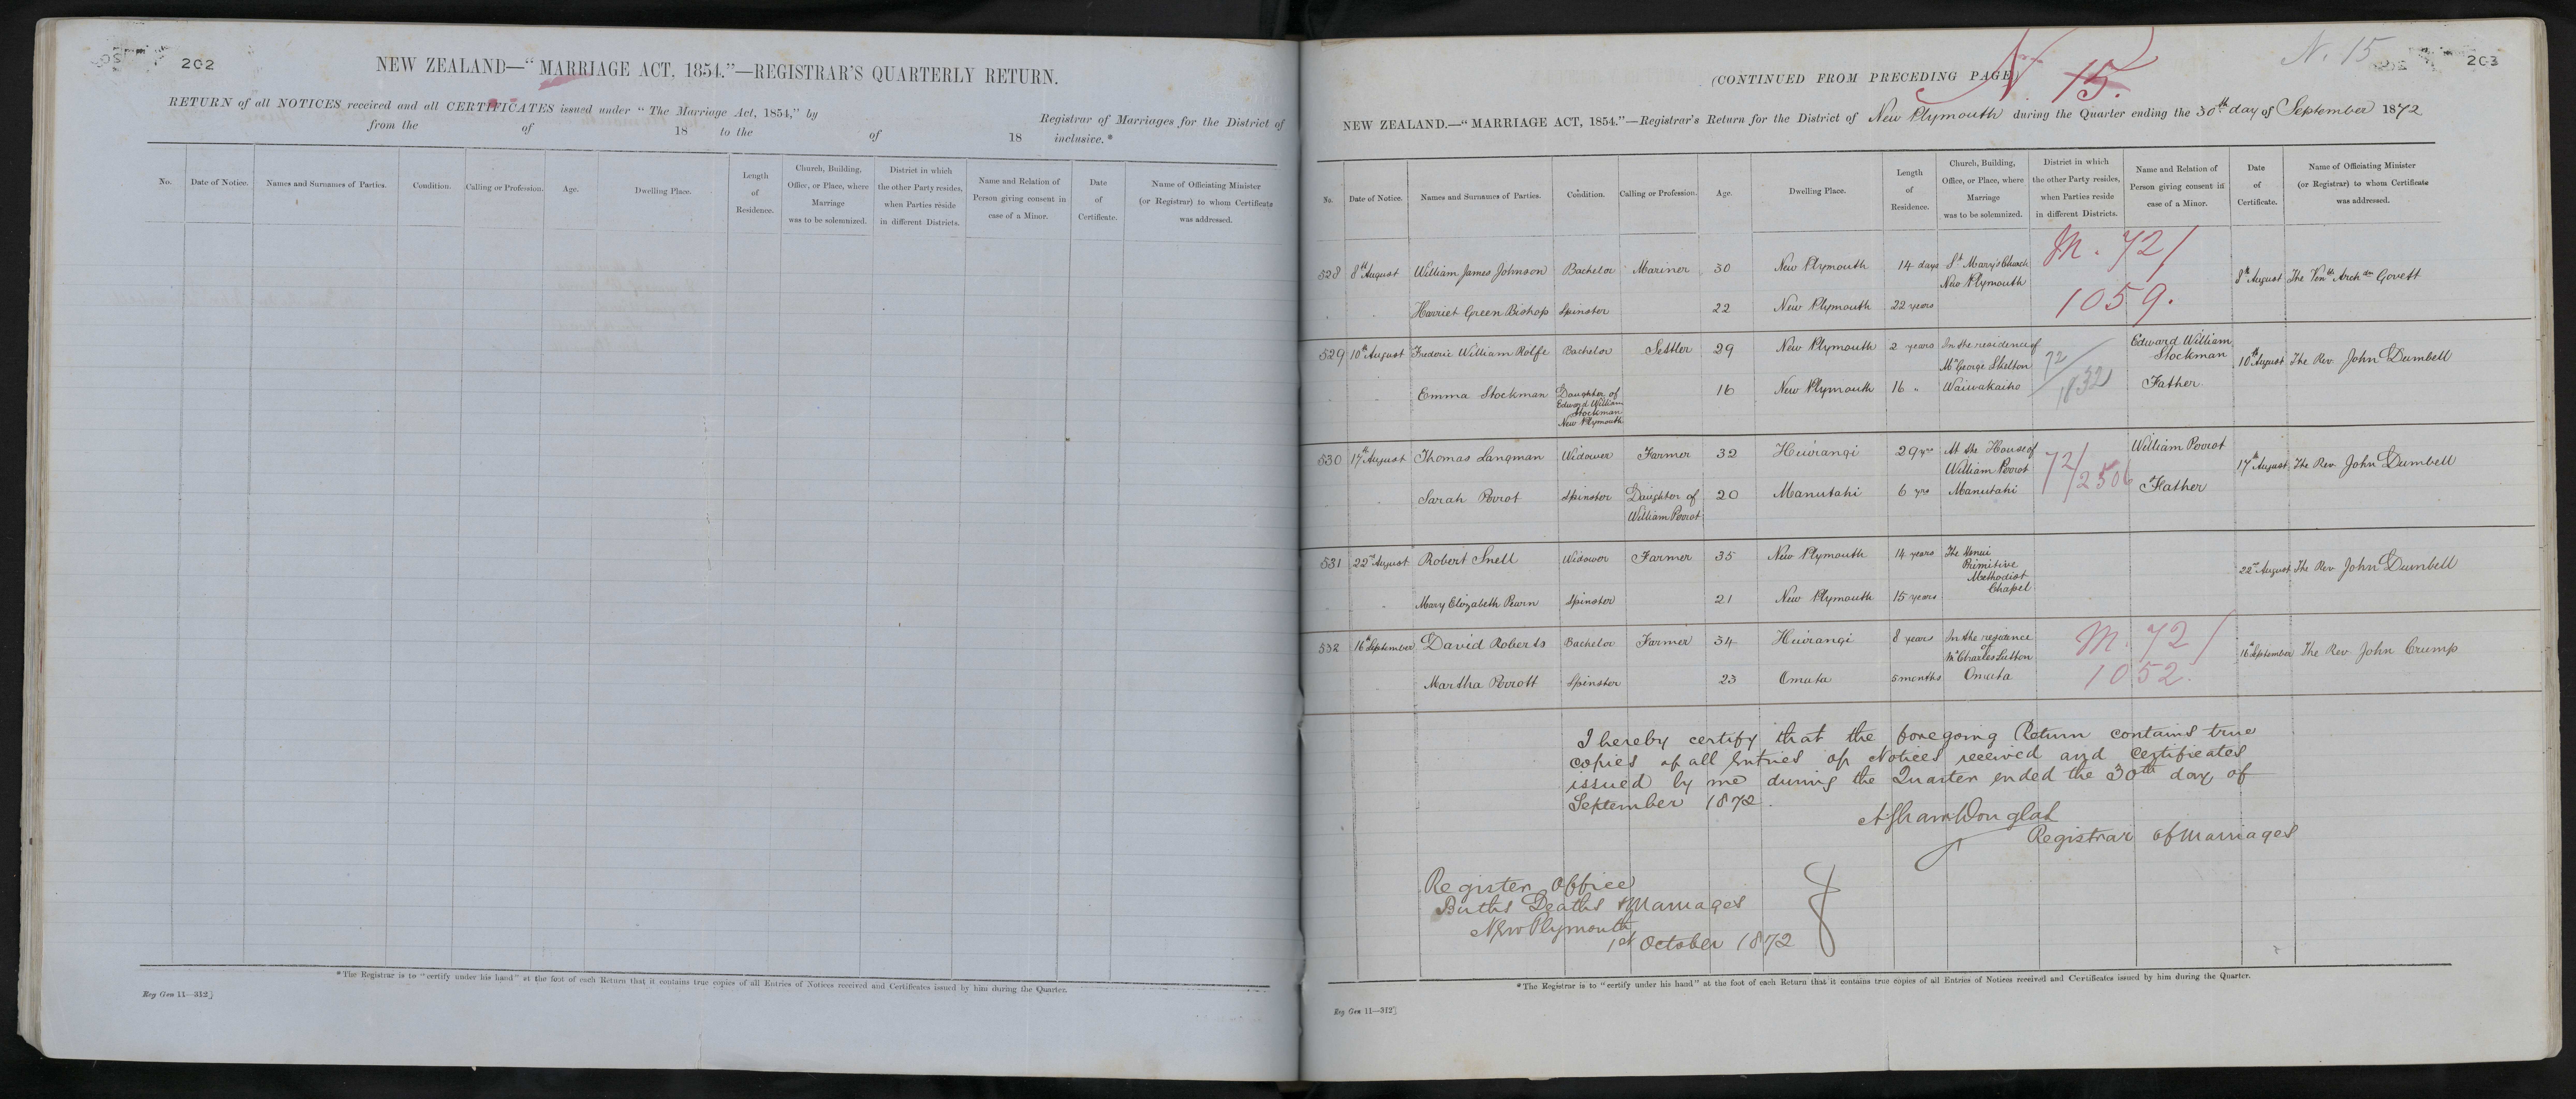 202
NEW ZEALAND—“MARRIAGE ACT, 1854.”—REGISTRAR'S QUARTERLY RETURN.
RETURN of all NOTICES received and all CERTIFICATES issued under “The Marriage Act, 1854,” by Registrar of Marriages for the District of
from the of 18 to the of 18 inclusive.*
No. Date of Notice. Names and Surnames of Parties. Condition. Calling or Profession. Age. Dwelling Place. Length of Residence. Church, Building, Office, or Place, where Marriage was to be solemnized. District in which the other Party resides, when Parties reside in different Districts. Name and Relation of Person giving consent in case of a Minor. Date of Certificate. Name of Officiating Minister (or Registrar) to whom Certificate was addressed.
*The Registrar is to “certify under his hand” at the foot of each Return that it contains true copies of all Entries of Notices received and Certificates issued by him during the Quarter.
Reg Gen 11—312]
N. 15
203
(CONTINUED FROM PRECEDING PAGE)
N. 15.
NEW ZEALAND.—“MARRIAGE ACT, 1854.”—Registrar's Return for the District of New Plymouth during the Quarter ending the 30th day of September 1872
No. Date of Notice. Names and Surnames of Parties. Condition. Calling or Profession. Age. Dwelling Place. Length of Residence. Church, Building, Office, or Place, where Marriage was to be solemnized. District in which the other Party resides, when Parties reside in different Districts. Name and Relation of Person giving consent in case of a Minor. Date of Certificate. Name of Officiating Minister (or Registrar) to whom Certificate was addressed.
528 8th August William James Johnson Bachelor Mariner 30 New Plymouth 14 days St Mary's Church New Plymouth M. 72/ 8th August The Venble Archdn Govett
Harriet Green Bishop Spinster 22 New Plymouth 22 years 1059.
529 10th August Frederic William Rolfe Bachelor Settler 29 New Plymouth 2 years In the residence of Mr George Skelton 72/ Edward William Stockman 10th August The Rev. John Dumbell
Emma Stockman Daughter of Edward William Stockman New Plymouth 16 New Plymouth 16 " Waiwakaiho 1832 Father
530 17th August Thomas Langman Widower Farmer 32 Huirangi 29 yrs At the House of William Perrot 72/ William Perrot 17th August The Rev. John Dumbell
Sarah Perrot Spinster Daughter of William Perrot 20 Manutahi 6 yrs Manutahi 2506 Father
531 22nd August Robert Snell Widower Farmer 35 New Plymouth 14 years The Henui Primitive Methodist Chapel 22nd August The Rev John Dumbell
Mary Elizabeth Pearn Spinster 21 New Plymouth 15 years
532 16th September David Roberts Bachelor Farmer 34 Huirangi 8 years In the residence of Mr Charles Sutton M. 72/ 16th September The Rev John Crump
Martha Perrott Spinster 23 Omata 5 months Omata 1052.
I hereby certify that the foregoing Return contains true
copies of all Entries of Notices received and Certificates
issued by me during the Quarter ended the 30th day of
September 1872.
Registrar of Marriages
Register Office
Births Deaths & Marriages
New Plymouth
1st October 1872
*The Registrar is to “certify under his hand” at the foot of each Return that it contains true copies of all Entries of Notices received and Certificates issued by him during the Quarter.
Reg Gen 11—312]